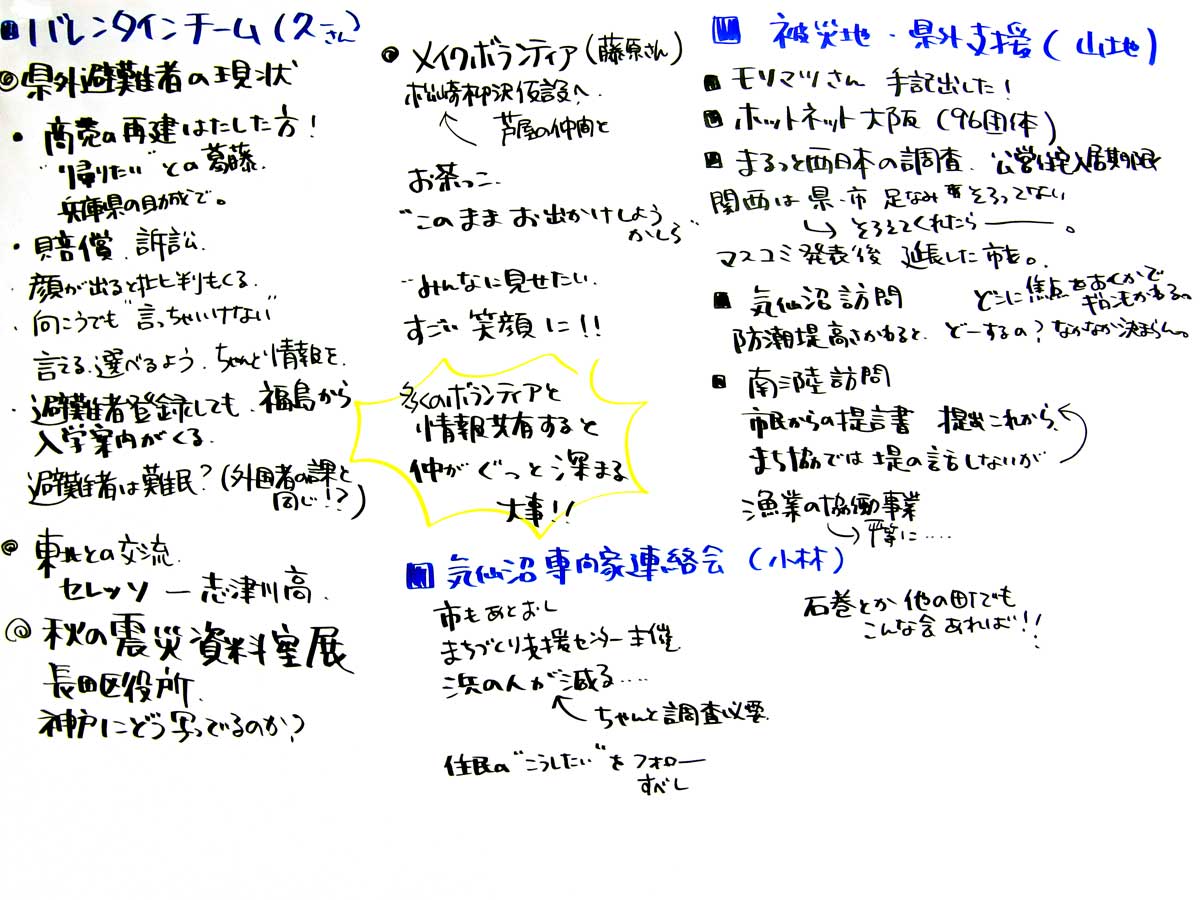 ■ バレンタインチーム(久さん)
◎ 県外避難者の現状
・ 商売の再建はたした方!
"帰りたい"との葛藤.
兵庫県の助成で。
・ 賠償.訴訟.
・ 顔が出ると批判もくる.
・ 向こうでも"言っちゃいけない"
言える.選べるよう.ちゃんと情報を.
・ 避難者登録しても.福島から
入学案内がくる.
避難者は難民?(外国者の課と
同じ!?)
◎ 東北との交流.
セレッソ ー 志津川高.
◎ 秋の震災資料室展
長田区役所.
神戸にどう写ってるのか?
◎ メイクボランティア(藤原さん)
松崎柳沢仮設へ.
芦屋の仲間と
お茶っこ.
"このまま お出かけしよう
かしら"
"みんなに見せたい.
すごい 笑顔 に!!
多くのボランティアと
情報共有すると
仲が ぐっと 深まる
大事!!
■ 気仙沼専門家連絡会(小林)
市もあとおし
まちづくり支援センター主催.
浜の人が減る‥‥
ちゃんと調査必要.
住民の"こうしたい"を フォロー
すべし
石巻とか 他の町でも
こんな会 あれば!!
■ 被災地・県外支援(山地)
■ モリマツさん 手記出した!
■ ホットネット大阪(96団体)
■ まるっと西日本の調査.公営住宅入居期限
関西は 県・市 足なみ そろってない
そろえてくれたら――。
マスコミ発表後 延長した市も。
■ 気仙沼訪問
どこに焦点をおくかで
ギロンもかわる。
防潮堤高さかわると、どーするの?なかなか決まらん。
■ 南三陸訪問
市民からの提言書 提出これから.
まち協では 堤の話しないが
漁業の協働事業
平等に‥‥